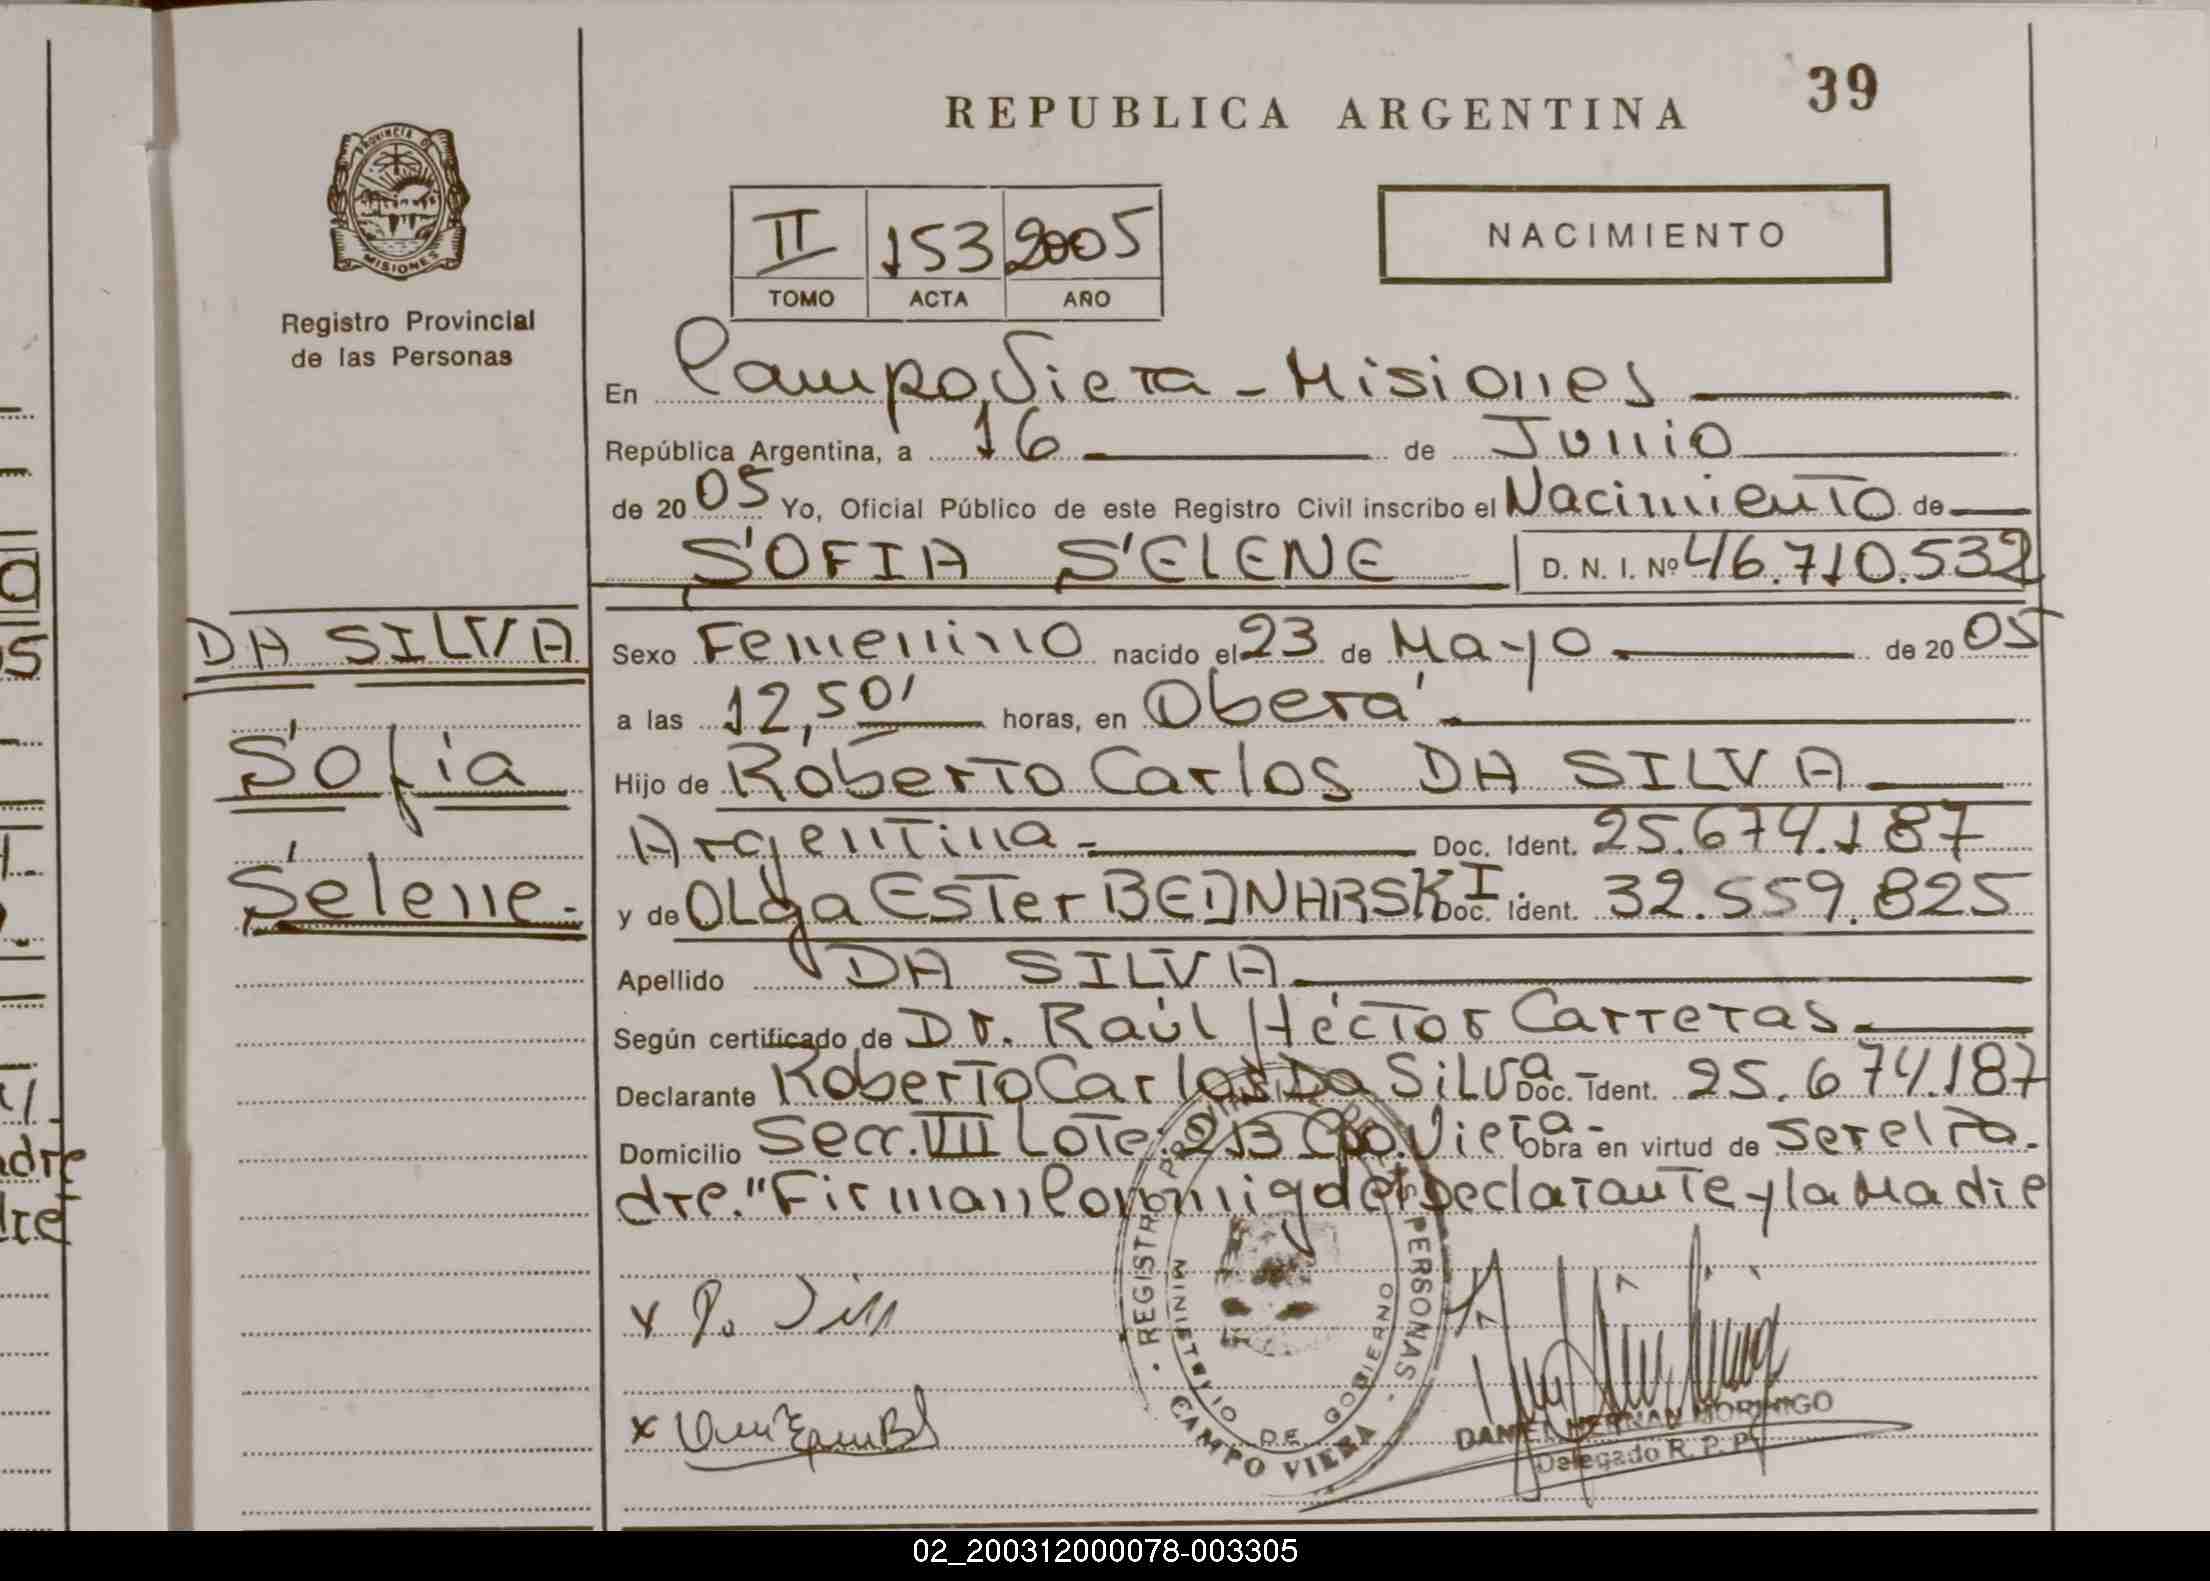 REPUBLICA ARGENTINA
39
PROVINCIA DE
MISIONES
Registro Provincial
de las Personas
II 153 2005
TOMO ACTA AÑO
NACIMIENTO
En Campo Viera - Misiones
República Argentina, a 16 de Junio
de 2005 Yo, Oficial Público de este Registro Civil inscribo el Nacimiento de
SOFIA SELENE D. N. I. Nº 46.710.532
DA SILVA
Sofia
Selene.
Sexo Femenino nacido el 23 de Mayo de 2005
a las 12,50' horas, en Oberá
Hijo de Roberto Carlos DA SILVA
Argentina - Doc. Ident. 25.674.187
y de OLga ESTer BEDNARSKI. Doc. Ident. 32.559.825
Apellido DA SILVA
Según certificado de Dr. Raúl Héctor Carreras.
Declarante Roberto Carlos Da SiLva - Doc. Ident. 25.674.187
Domicilio Secc. VII Lote: 213 Cpo. Viera - Obra en virtud de ser el Pa-
dre. "Firman Conmigo el Declarante y la Madre
REGISTRO PROVINCIAL DE LAS PERSONAS
MINISTERIO DE GOBIERNO
CAMPO VIERA
DANIEL HERNAN MORINIGO
Delegado R. P. P.
02_200312000078-003305